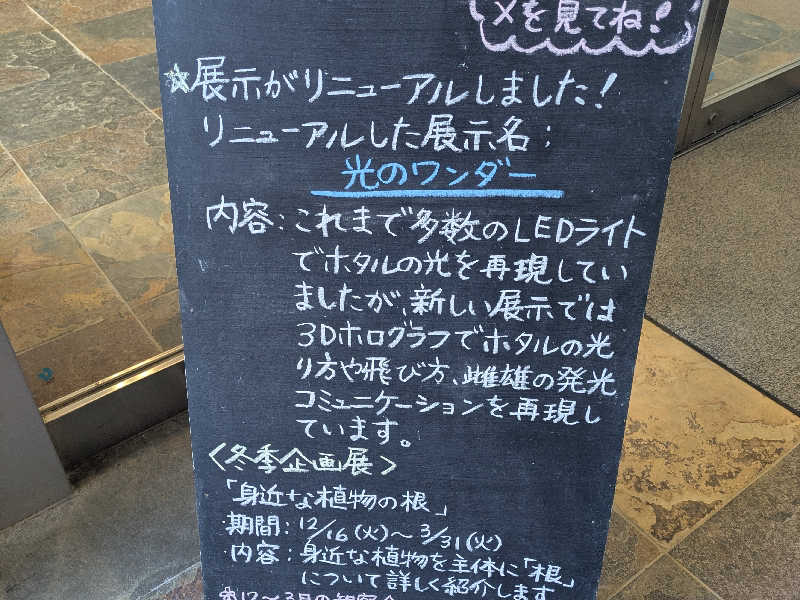 メを見てね!
☆展示がリニューアルしました!
リニューアルした展示名:
光のワンダー
内容:これまで多数のLEDライト
でホタルの光を再現してい
ましたが、新しい展示では
3Dホログラフでホタルの光
り方や飛び方、雌雄の発光
コミュニケーションを再現し
ています。
<冬季企画展>
「身近な植物の根」
・期間:12/16(火)~3/31(火)
・内容:身近な植物を主体に「根」
について詳しく紹介します
※12~3月の観察会